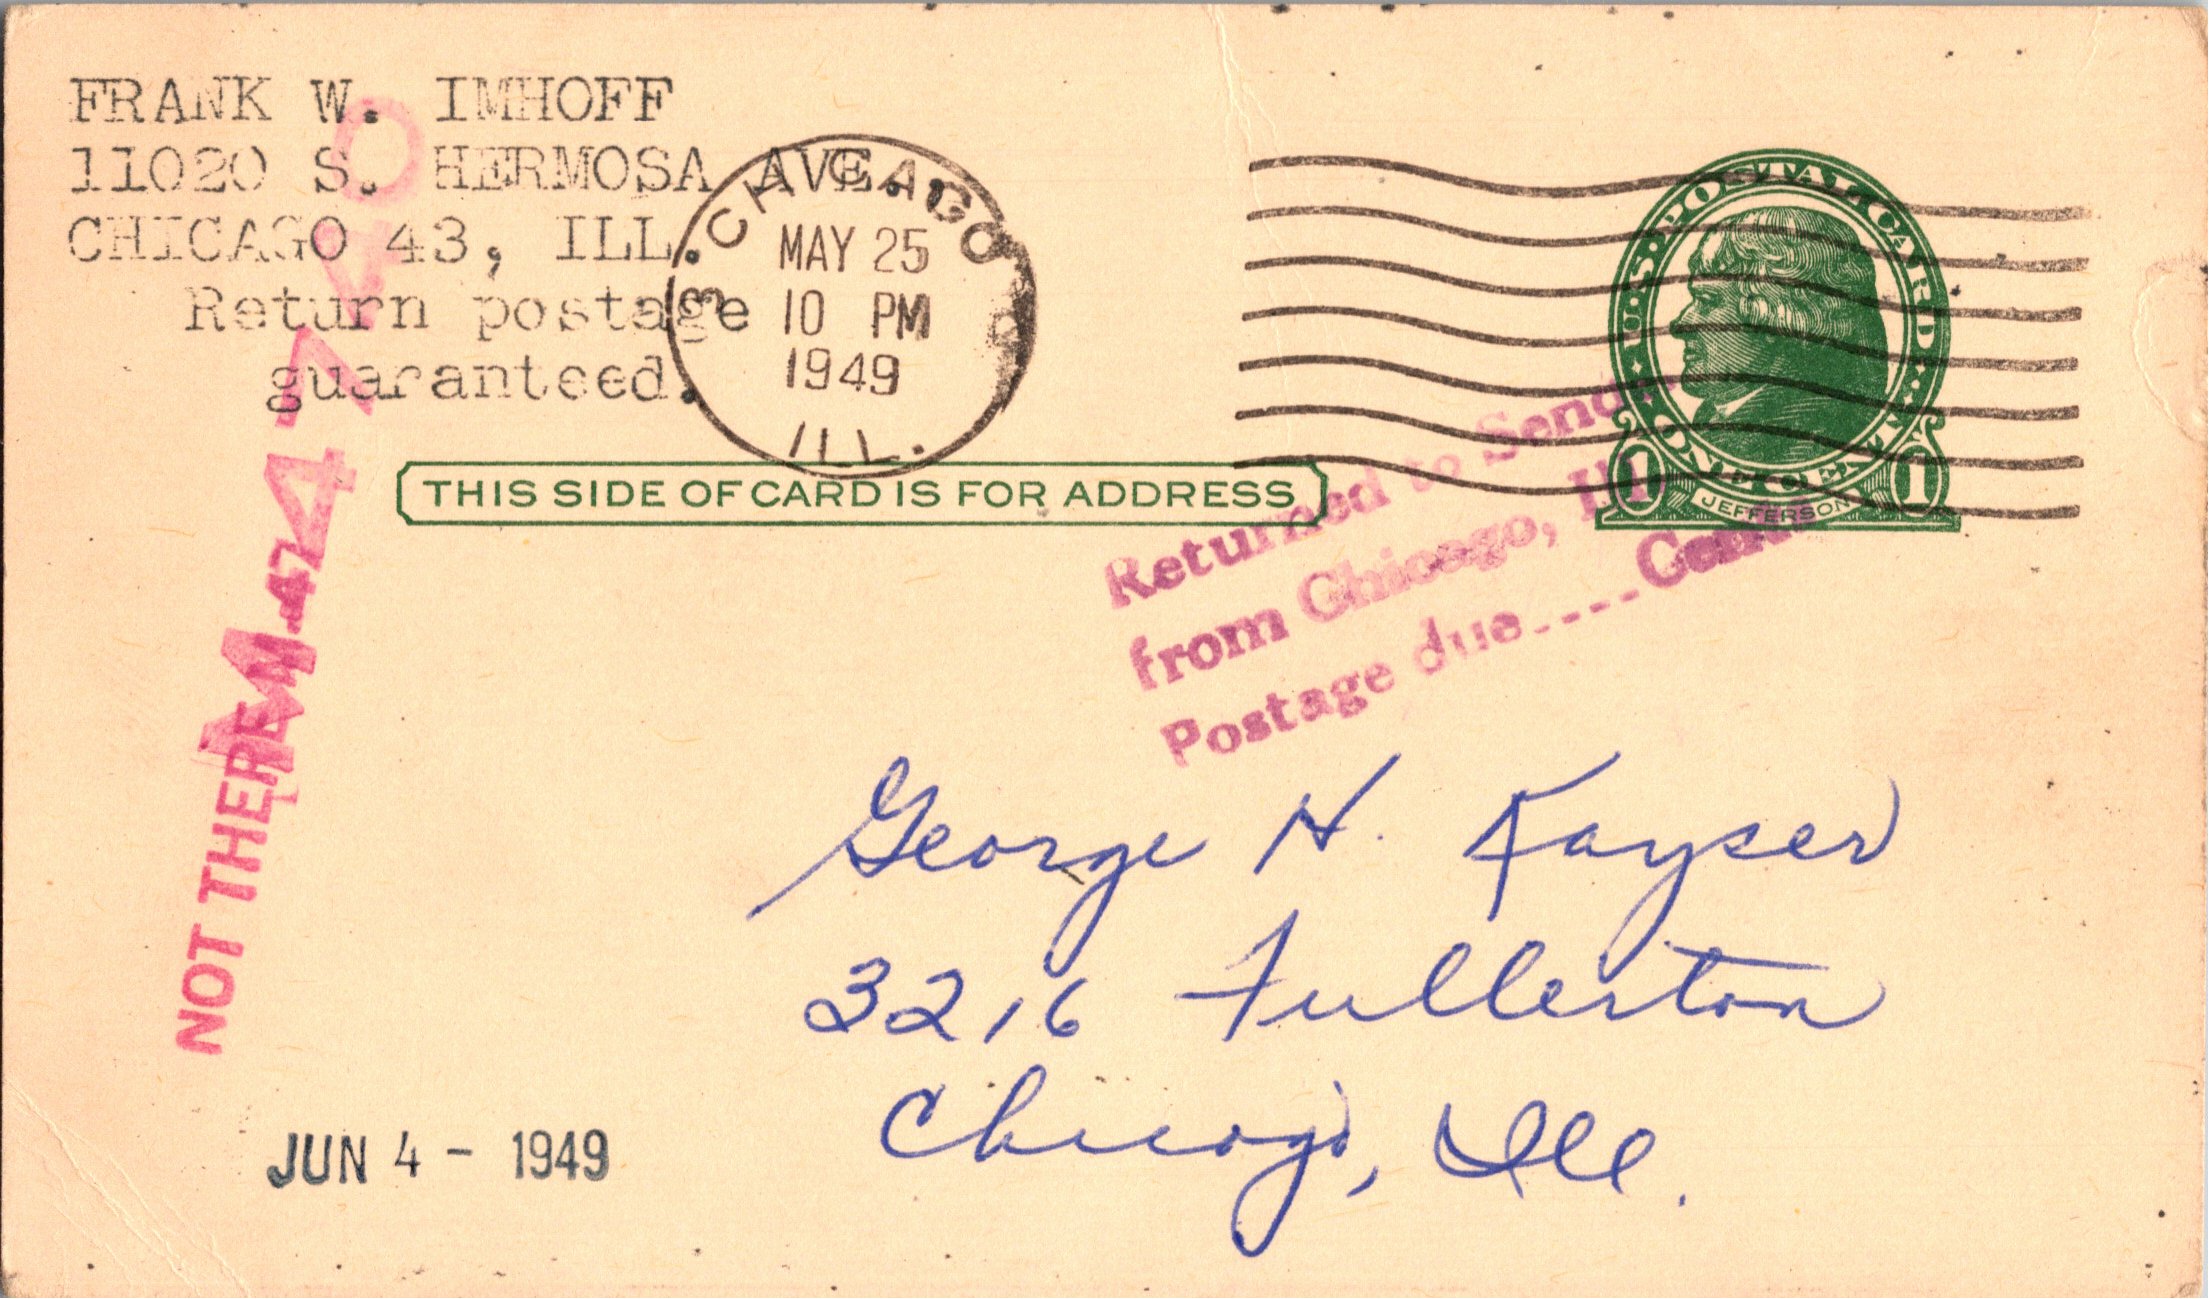 FRANK W. IMHOFF
11020 S. HERMOSA AVE.
CHICAGO 43, ILL.
Return postage
guaranteed.
CHICAGO
MAY 25
10 PM
1949
ILL.
U.S. POSTAL CARD
ONE CENT
1 JEFFERSON 1
THIS SIDE OF CARD IS FOR ADDRESS
Returned to Sender
from Chicago, Ill
Postage due----Cents
NOT THERE
George H. Kayser
3216 Fullerton
Chicago, Ill.
JUN 4 - 1949